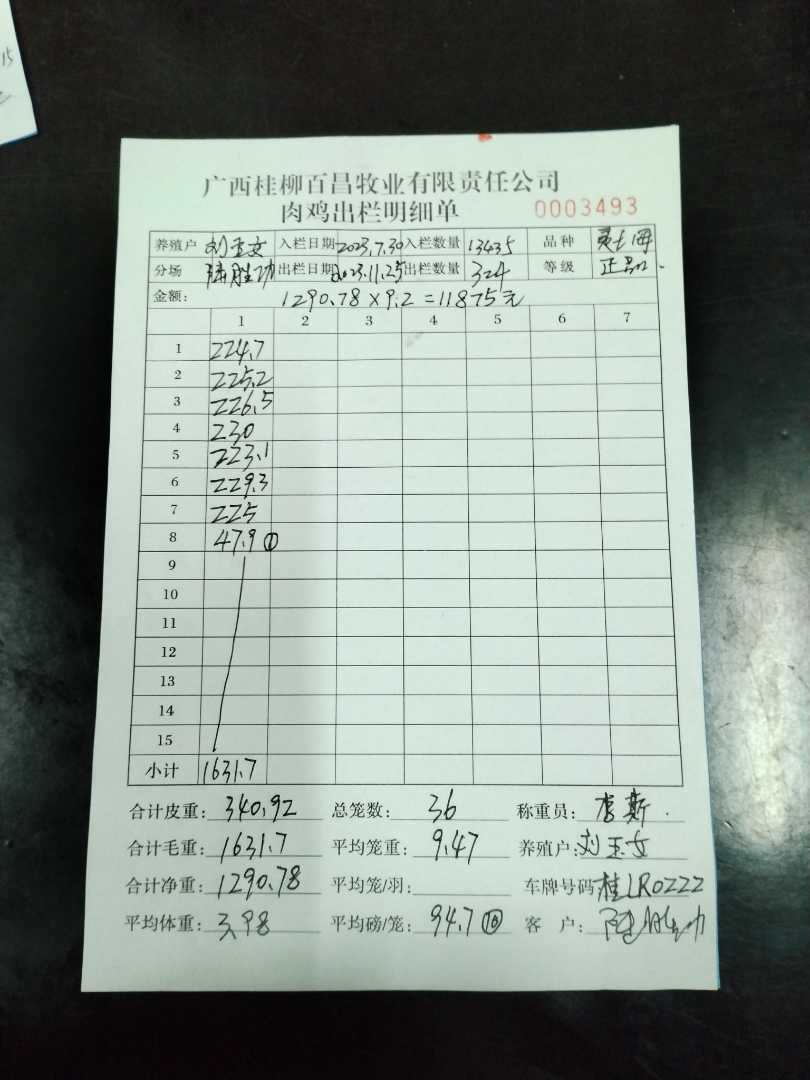 15
广西桂柳百昌牧业有限责任公司
肉鸡出栏明细单 0003493
养殖户 刘玉文 入栏日期 2023.7.30 入栏数量 13435 品种
分场 陆胜功 出栏日期 2023.11.25 出栏数量 324 等级 正品
金额: 1290.78×9.2=11875元
1 2 3 4 5 6 7
1 224.7
2 225.2
3 226.5
4 230
5 223.1
6 229.3
7 225
8 47.9 ①
9
10
11
12
13
14
15
小计 1631.7
合计皮重: 340.92 总笼数: 36 称重员: 李斯
合计毛重: 1631.7 平均笼重: 9.47 养殖户: 刘玉文
合计净重: 1290.78 平均笼/羽: 车牌号码 桂LR0222
平均体重: 3.98 平均磅/笼: 94.7 ⑩ 客 户: 陆胜功